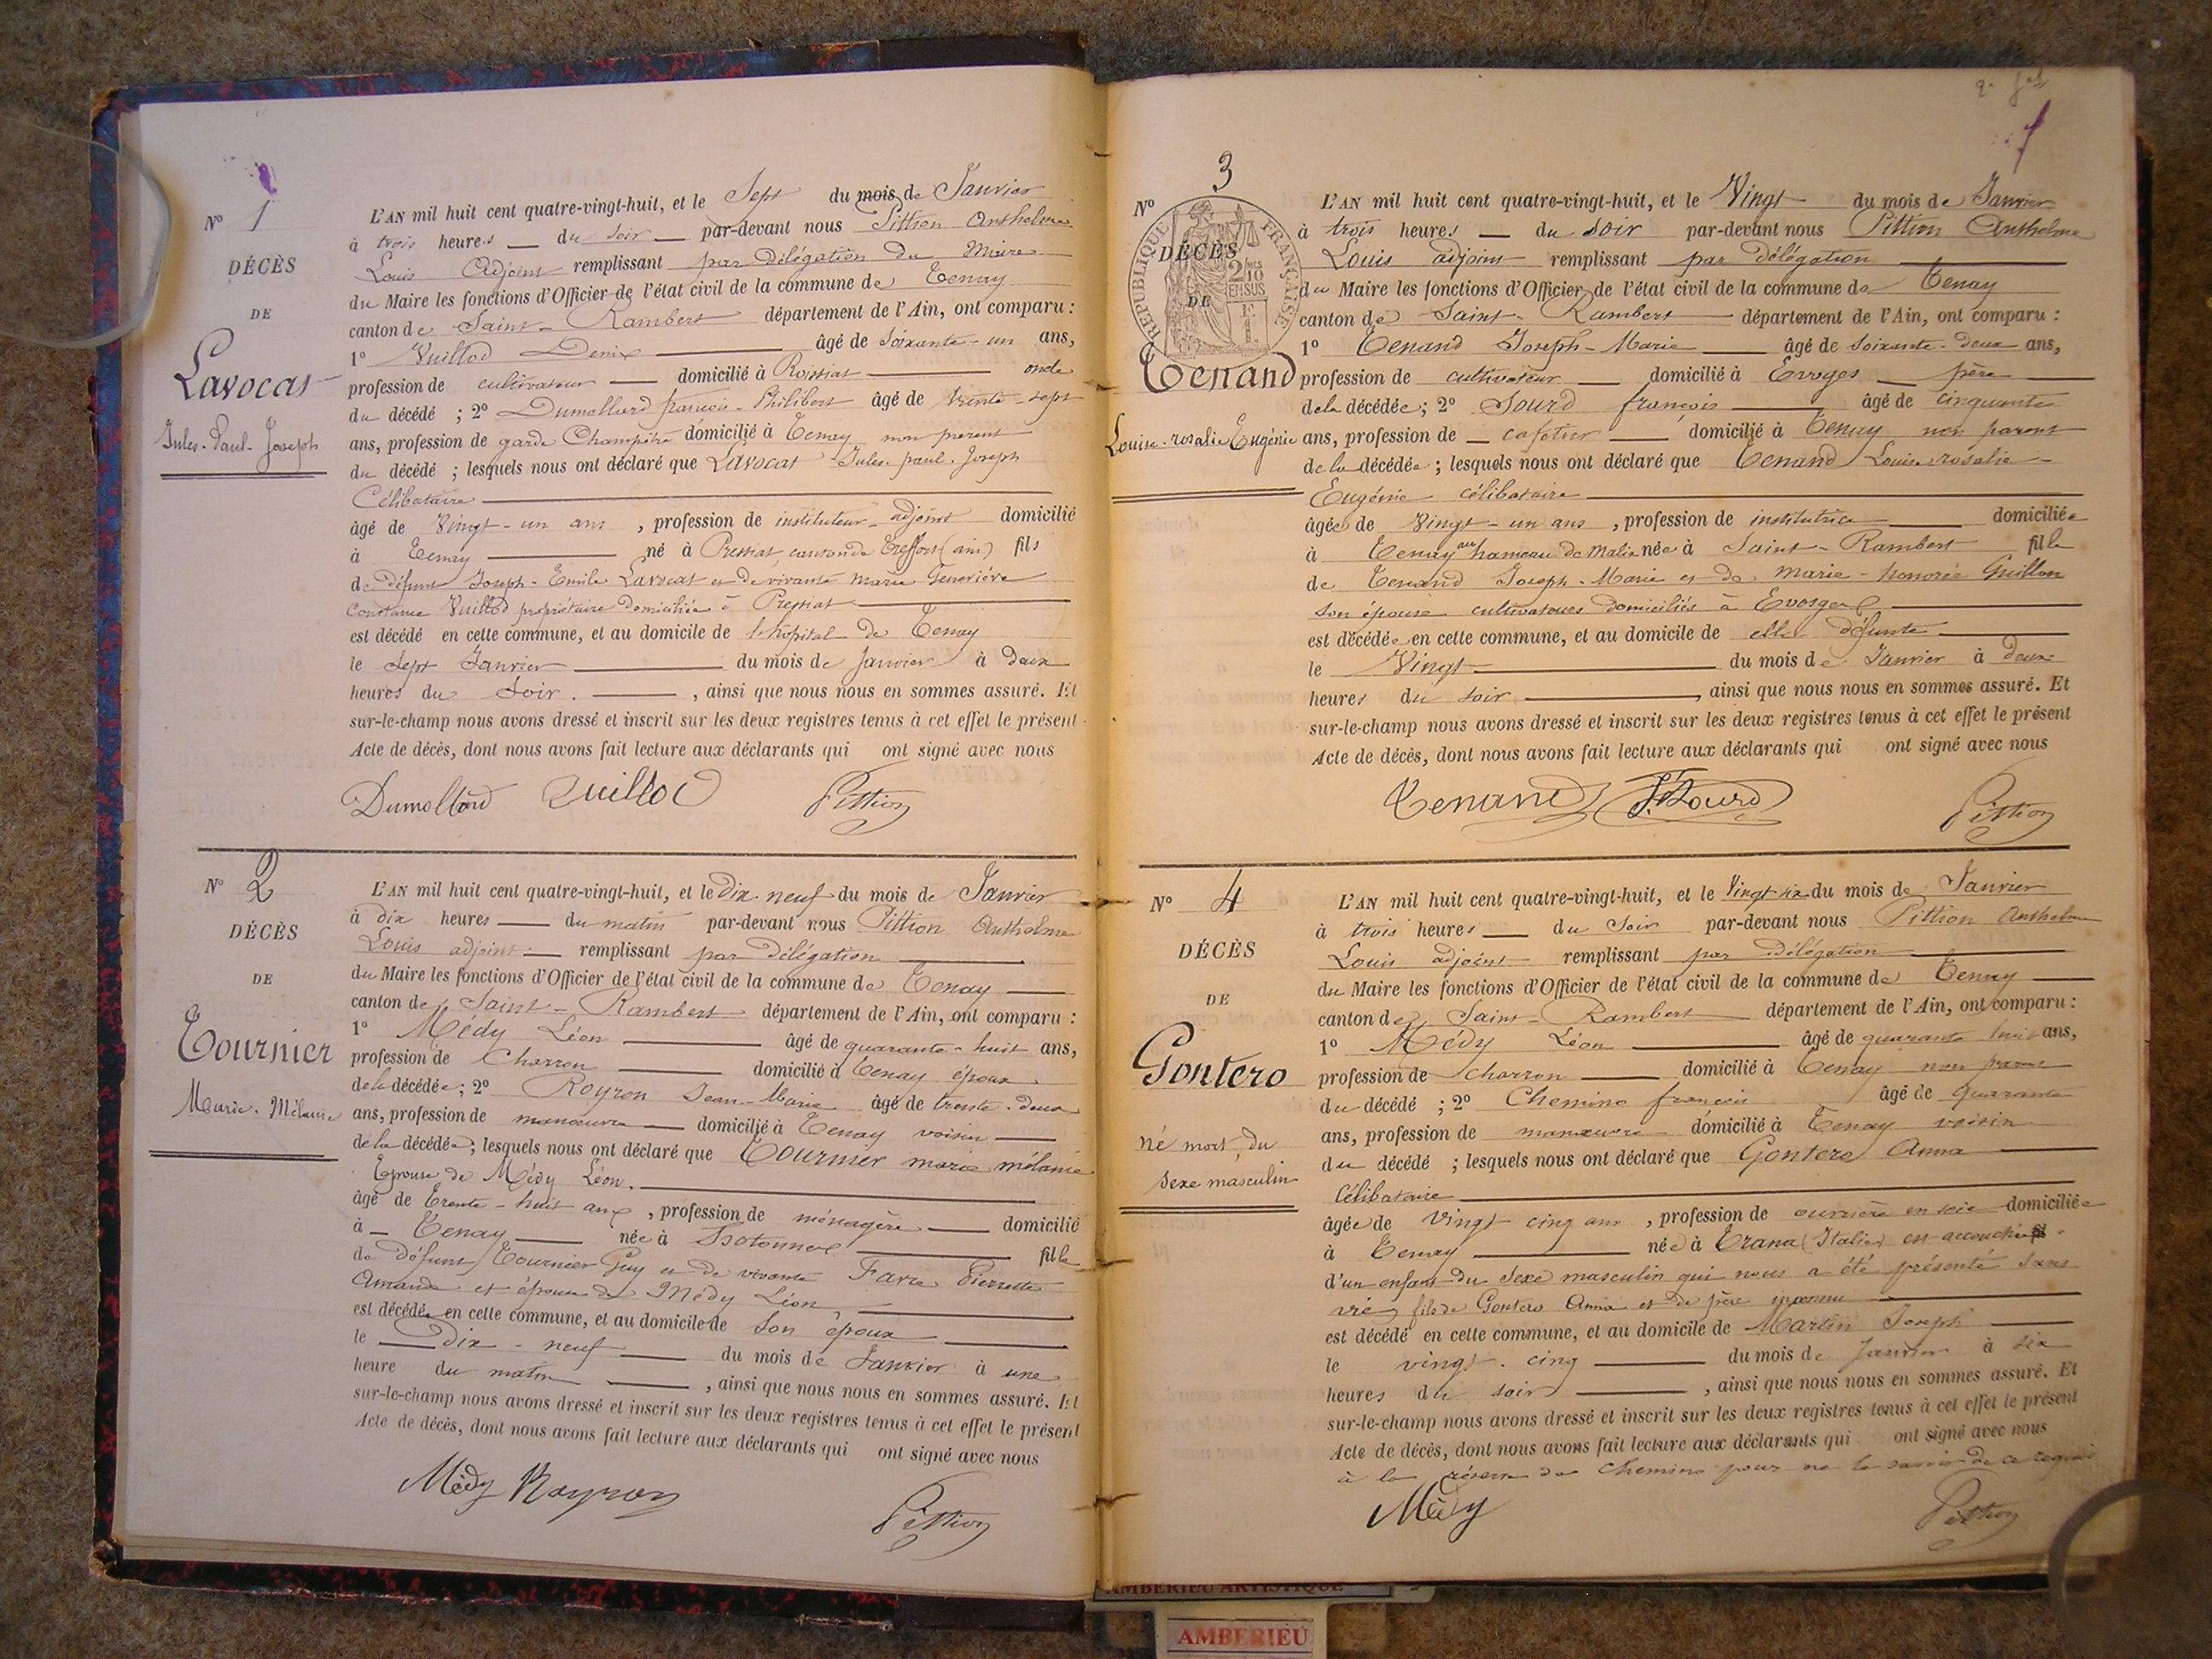 Nº 1
DÉCÈS
DE
Lavocat
Jules-Paul-Joseph
L'AN mil huit cent quatre-vingt-huit, et le Sept du mois de Janvier
à trois heures du soir par-devant nous Pittion Anthelme
Louis Adjoint remplissant par délégation du Maire
du Maire les fonctions d'Officier de l'état civil de la commune de Tenay
canton de Saint-Rambert département de l'Ain, ont comparu :
1º Vuillod Denis âgé de Soixante-un ans,
profession de cultivateur domicilié à Roissiat oncle
du décédé ; 2º Dumollard françois-Philibert âgé de trente-sept
ans, profession de garde Champêtre domicilié à Tenay non parent
du décédé ; lesquels nous ont déclaré que Lavocat Jules-paul-Joseph
Célibataire
âgé de Vingt-un ans, profession de instituteur-adjoint domicilié
à Tenay né à Pressiat, canton de Treffort (ain) fils
de défunt Joseph-Emile Lavocat et de vivante Marie Geneviève
Constance Vuillod propriétaire domiciliée à Pressiat
est décédé en cette commune, et au domicile de l'hôpital de Tenay
le Sept Janvier du mois de Janvier à deux
heures du Soir, ainsi que nous nous en sommes assuré. Et
sur-le-champ nous avons dressé et inscrit sur les deux registres tenus à cet effet le présent
Acte de décès, dont nous avons fait lecture aux déclarants qui ont signé avec nous
Dumollard Vuillod Pittion
Nº 2
DÉCÈS
DE
Tournier
Marie-Mélanie
L'AN mil huit cent quatre-vingt-huit, et le Dix-neuf du mois de Janvier
à dix heures du matin par-devant nous Pittion Anthelme
Louis adjoint remplissant par délégation
du Maire les fonctions d'Officier de l'état civil de la commune de Tenay
canton de Saint-Rambert département de l'Ain, ont comparu :
1º Médy Léon âgé de quarante-huit ans,
profession de Charron domicilié à Tenay époux
de la décédée ; 2º Royron Jean-Marie âgé de trente-deux
ans, profession de manœuvre domicilié à Tenay voisin
de la décédée ; lesquels nous ont déclaré que Tournier marie mélanie
Epouse de Médy Léon.
âgé de Trente-huit ans, profession de ménagère domicilié
à Tenay née à Sotonnod fille
de défunt Tournier Guy et de vivante Favre Pierrette
Amande et épouse de Médy Léon,
est décédée en cette commune, et au domicile de Son époux
le Dix-neuf du mois de Janvier à une
heure du matin, ainsi que nous nous en sommes assuré. Et
sur-le-champ nous avons dressé et inscrit sur les deux registres tenus à cet effet le présent
Acte de décès, dont nous avons fait lecture aux déclarants qui ont signé avec nous
Médy Royron
Pittion
Nº 3
DÉCÈS
DE
RÉPUBLIQUE FRANÇAISE
2/10 EN SUS
Tenand
Louise-rosalie Eugénie
L'AN mil huit cent quatre-vingt-huit, et le Vingt du mois de Janvier
à trois heures du Soir par-devant nous Pittion Anthelme
Louis adjoint remplissant par délégation
du Maire les fonctions d'Officier de l'état civil de la commune de Tenay
canton de Saint-Rambert département de l'Ain, ont comparu :
1º Tenand Joseph-Marie âgé de Soixante-deux ans,
profession de cultivateur domicilié à Evoges père
de la décédée ; 2º Sourd françois âgé de cinquante
ans, profession de cafetier domicilié à Tenay non parent
de la décédée ; lesquels nous ont déclaré que Tenand Louise-rosalie-
Eugénie célibataire
âgée de Vingt-un ans, profession de institutrice domiciliée
à Tenay au hameau de Malix née à Saint-Rambert fille
de Tenand Joseph-Marie et de Marie-honorée Guillon
son épouse cultivateurs domiciliés à Evosges
est décédée en cette commune, et au domicile de elle défunte
le Vingt du mois de Janvier à deux
heures du soir, ainsi que nous nous en sommes assuré. Et
sur-le-champ nous avons dressé et inscrit sur les deux registres tenus à cet effet le présent
Acte de décès, dont nous avons fait lecture aux déclarants qui ont signé avec nous
Tenand Sourd
Pittion
Nº 4
DÉCÈS
DE
Gontero
né mort, du
Sexe masculin
L'AN mil huit cent quatre-vingt-huit, et le Vingt-six du mois de Janvier
à trois heures du Soir par-devant nous Pittion Anthelme
Louis adjoint remplissant par délégation
du Maire les fonctions d'Officier de l'état civil de la commune de Tenay
canton de Saint-Rambert département de l'Ain, ont comparu :
1º Médy Léon âgé de quarante huit ans,
profession de charron domicilié à Tenay non parent
du décédé ; 2º Chemino françois âgé de quarante
ans, profession de manœuvre domicilié à Tenay voisin
du décédé ; lesquels nous ont déclaré que Gontero Anna
Célibataire
âgée de Vingt cinq ans, profession de ouvrière en soie domiciliée
à Tenay née à Trana (Italie) est accouchée
d'un enfant du Sexe masculin qui nous a été présenté Sans
vie, fils de Gontero Anna et de père inconnu
est décédé en cette commune, et au domicile de Martin Joseph
le vingt-cinq du mois de Janvier à six
heures du soir, ainsi que nous nous en sommes assuré. Et
sur-le-champ nous avons dressé et inscrit sur les deux registres tenus à cet effet le présent
Acte de décès, dont nous avons fait lecture aux déclarants qui ont signé avec nous
à la réserve de Chemino pour ne le savoir de ce requis
Médy
Pittion
AMBERIEU ARTISTIQUE
AMBERIEU